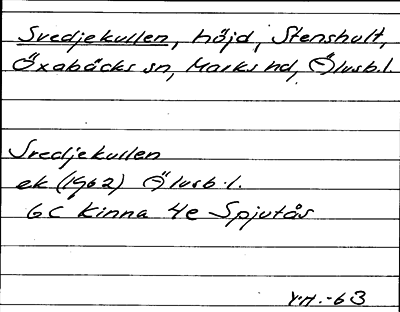 Svedjekullen, höjd, Stenshult,
Öxabäcks sn, Marks hd, Älvsb.l.
Svedjekullen
ek (1962) Älvsb.l.
6C Kinna 4e Spjutås
Y.H.-63